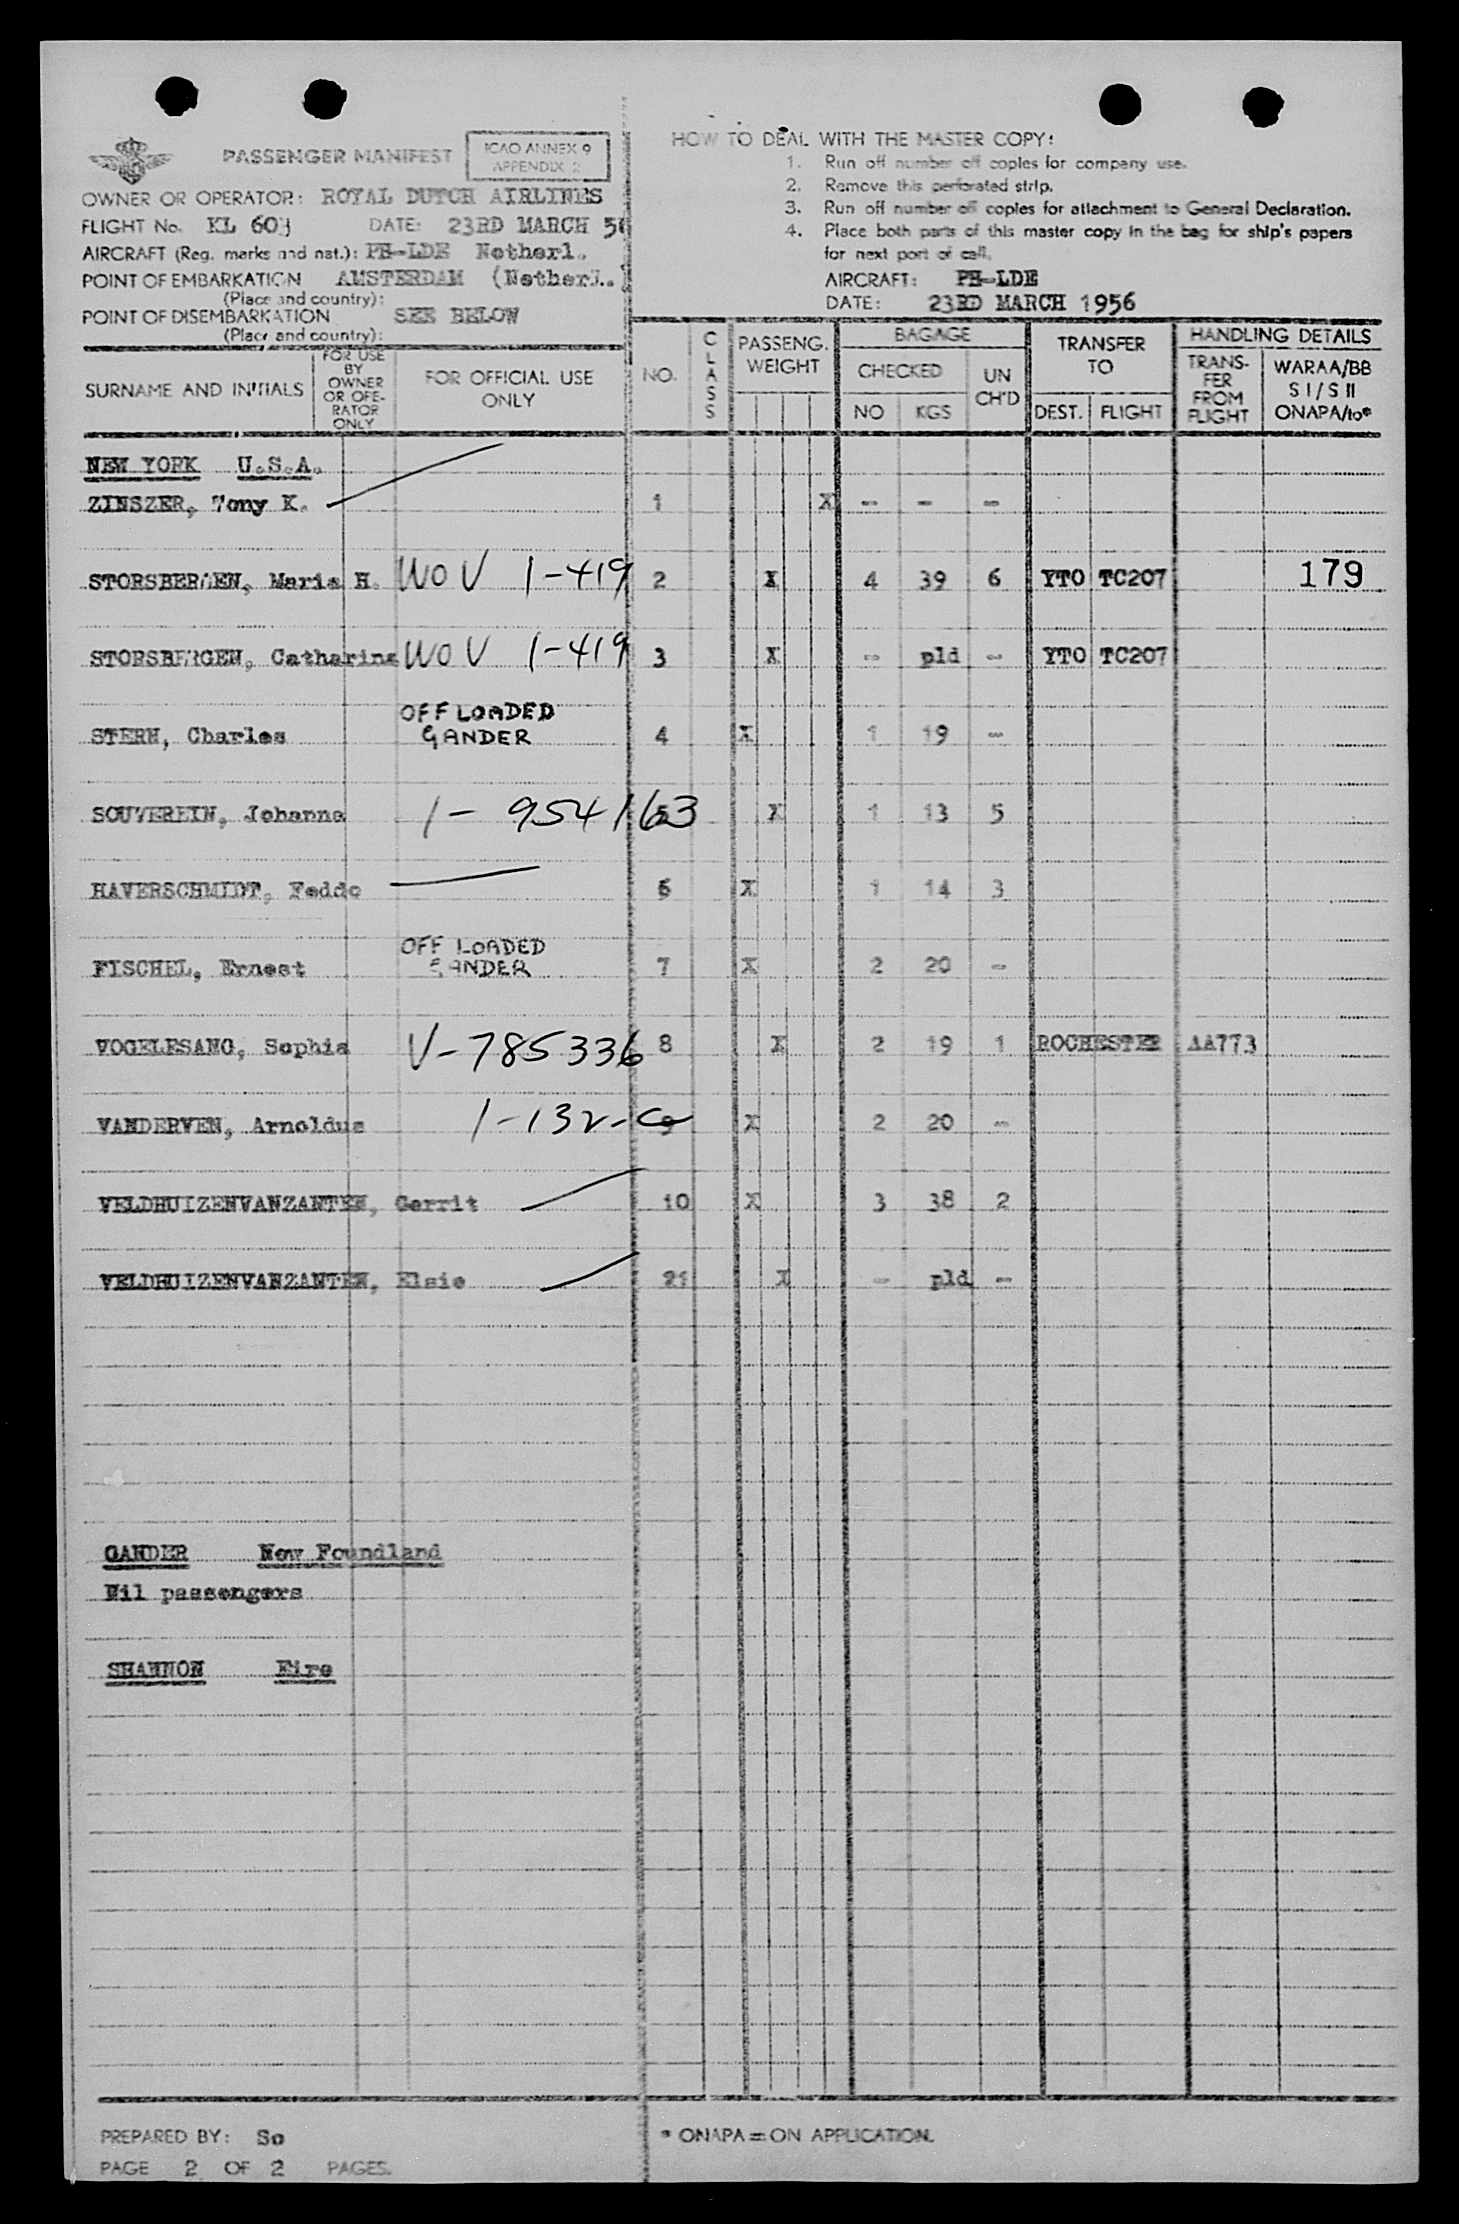 PASSENGER MANIFEST
ICAO ANNEX 9
APPENDIX 2
OWNER OR OPERATOR: ROYAL DUTCH AIRLINES
FLIGHT No. KL 603 DATE: 23RD MARCH 56
AIRCRAFT (Reg. marks and nat.): PH-LDE Netherl.
POINT OF EMBARKATION AMSTERDAM (Netherl.)
(Place and country):
POINT OF DISEMBARKATION SEE BELOW
(Place and country):
HOW TO DEAL WITH THE MASTER COPY:
1. Run off number off copies for company use.
2. Remove this perforated strip.
3. Run off number off copies for attachment to General Declaration.
4. Place both parts of this master copy in the bag for ship's papers
for next port of call.
AIRCRAFT: PH-LDE
DATE: 23RD MARCH 1956
SURNAME AND INITIALS
FOR USE
BY
OWNER
OR OPE-
RATOR
ONLY
FOR OFFICIAL USE
ONLY
NO.
CLASS
PASSENG.
WEIGHT
BAGAGE
CHECKED
NO KGS
UN
CH'D
TRANSFER
TO
DEST. FLIGHT
HANDLING DETAILS
TRANS-
FER
FROM
FLIGHT
WARAA/BB
S I / S II
ONAPA/to*
NEW YORK U.S.A.
ZINSZER, Tony K. 1 X - - -
STORSBERGEN, Maria H. WOV 1-419 2 X 4 39 6 YTO TC207 179
STORSBERGEN, Catharina WOV 1-419 3 X - pld - YTO TC207
OFF LOADED
STERN, Charles GANDER 4 X 1 19 -
SOUVEREIN, Johanna 1-954163 5 X 1 13 5
HAVERSCHMIDT, Feddo 6 X 1 14 3
OFF LOADED
FISCHEL, Ernest GANDER 7 X 2 20 -
VOGELESANG, Sophia V-785336 8 X 2 19 1 ROCHESTER AA773
VANDERVEN, Arnoldus 1-132-C 9 X 2 20 -
VELDHUIZENVANZANTEN, Gerrit 10 X 3 38 2
VELDHUIZENVANZANTEN, Elsie 21 X - pld -
GANDER New Foundland
Nil passengers
SHANNON Eire
PREPARED BY: So
PAGE 2 OF 2 PAGES.
* ONAPA = ON APPLICATION.